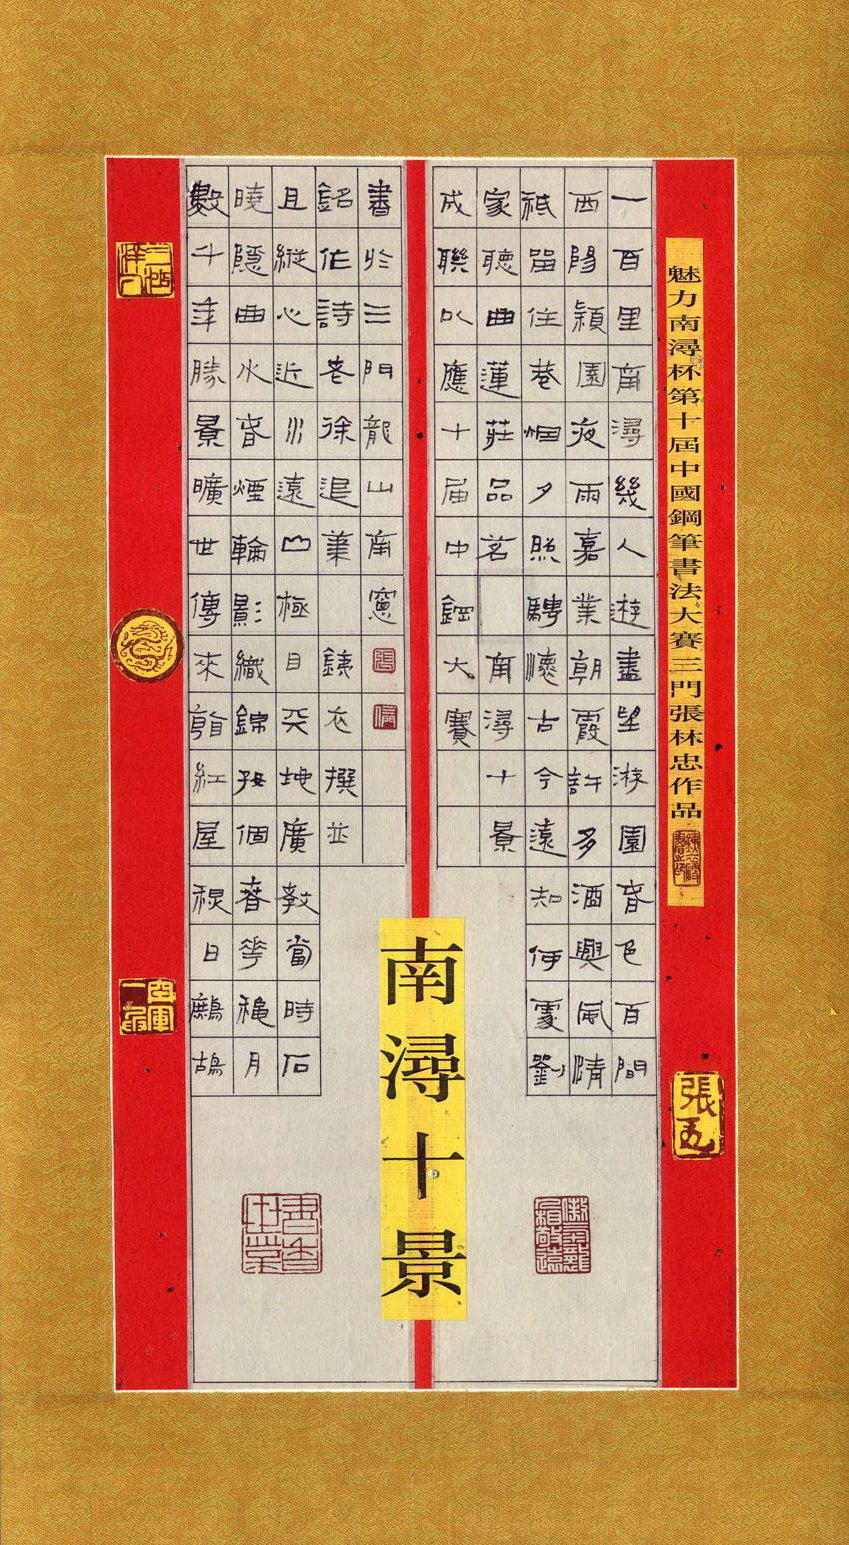 魅力南潯杯第十屆中國鋼筆書法大賽三門張林忠作品
一百里南潯幾人遊盡望游園春色百間
西陽穎園夜雨嘉業朝霞許多酒興風清
祗留住巷烟夕照騁懷古今遠知何處劉
家聽曲蓮莊品茗 南潯十景
成聯以應十届中鋼大賽
南潯十景
數千年勝景曠世傳來紅屋日鷓鴣
曉隱曲水春煙輪影織錦個春花穐月
且縱心近水遠山極目天地廣教當時石
銘作詩老徐退筆 鐵衣撰並
書於三門龍山南窻